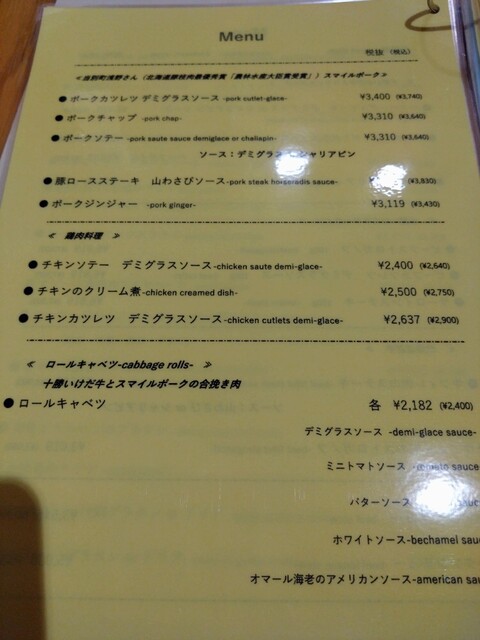 Menu
税抜 (税込)
≪当別町浅野さん（北海道銘枝肉最優秀賞「農林水産大臣賞受賞」）スマイルポーク≫
●ポークカツレツ デミグラスソース -pork cutlet-glace- ¥3,400 (¥3,740)
●ポークチャップ -pork chap- ¥3,310 (¥3,640)
●ポークソテー -pork saute sauce demiglace or chaliepin- ¥3,310 (¥3,640)
ソース：デミグラス シャリアピン
●豚ロースステーキ 山わさびソース-pork steak horseradis sauce- (¥3,830)
●ポークジンジャー -pork ginger- ¥3,119 (¥3,430)
≪ 鶏肉料理 ≫
●チキンソテー デミグラスソース-chicken saute demi-glace- ¥2,400 (¥2,640)
●チキンのクリーム煮-chicken creamed dish- ¥2,500 (¥2,750)
●チキンカツレツ デミグラスソース-chicken cutlets demi-glace- ¥2,637 (¥2,900)
≪ ロールキャベツ-cabbage rolls- ≫
十勝いけだ牛とスマイルポークの合挽き肉
●ロールキャベツ 各 ¥2,182 (¥2,400)
デミグラスソース -demi-glace sauce-
ミニトマトソース -tomato sauce
バターソース
ホワイトソース-bechamel sau
オマール海老のアメリカンソース-american sau